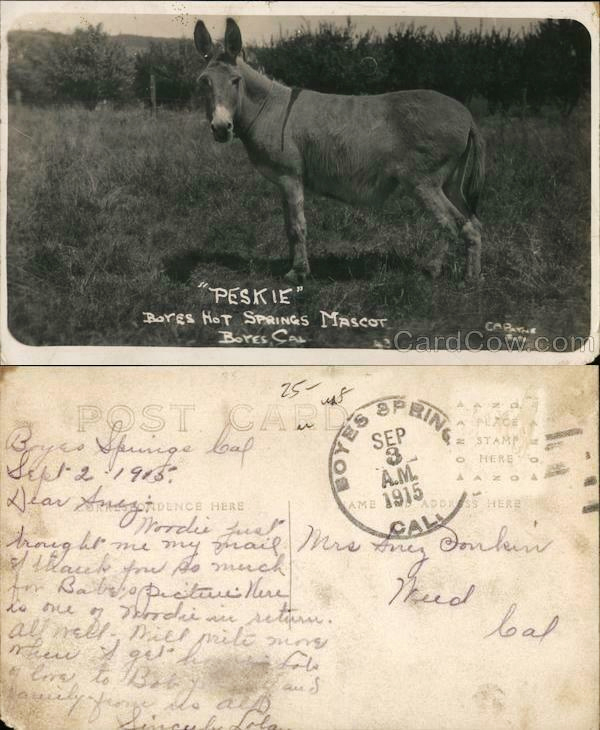 "PESKIE"
BOYES HOT SPRINGS MASCOT
BOYES CAL
CardCow.com
25-
POST CARD
CORRESPONDENCE HERE
Boyes Springs Cal
Sept 2 - 1915.
Dear Inez:-
Woodie just
brought me my mail
& thank you so much
for Bab's picture. Here
is one of Woodie in return.
All well. Will write more
when I get home. Lots
of love to Bab and
family from us all
BOYES SPRING
SEP
3
A.M.
1915
CAL.
AZO
PLACE
STAMP
HERE
AZO
NAME AND ADDRESS HERE
Mrs Inez
Weed
Cal